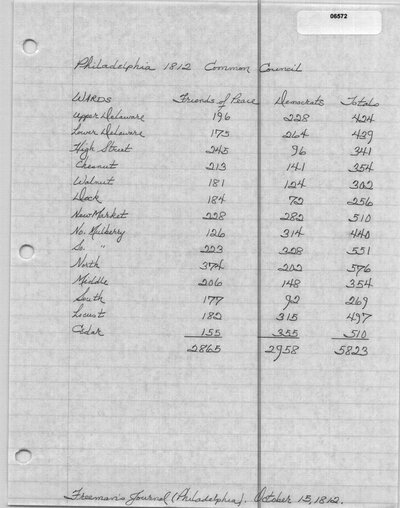 06572
Philadelphia 1812 Common Council
WARDS Friends of Peace Democrats Totals
Upper Delaware 196 228 424
Lower Delaware 175 264 439
High Street 245 96 341
Chesnut 213 141 354
Walnut 181 121 302
Dock 184 72 256
New Market 228 282 510
No. Mulberry 126 314 440
So. " 223 328 551
North 374 202 576
Middle 206 148 354
South 177 92 269
Locust 182 315 497
Cedar 155 355 510
2865 2958 5823
Freeman's Journal (Philadelphia). October 15, 1812.